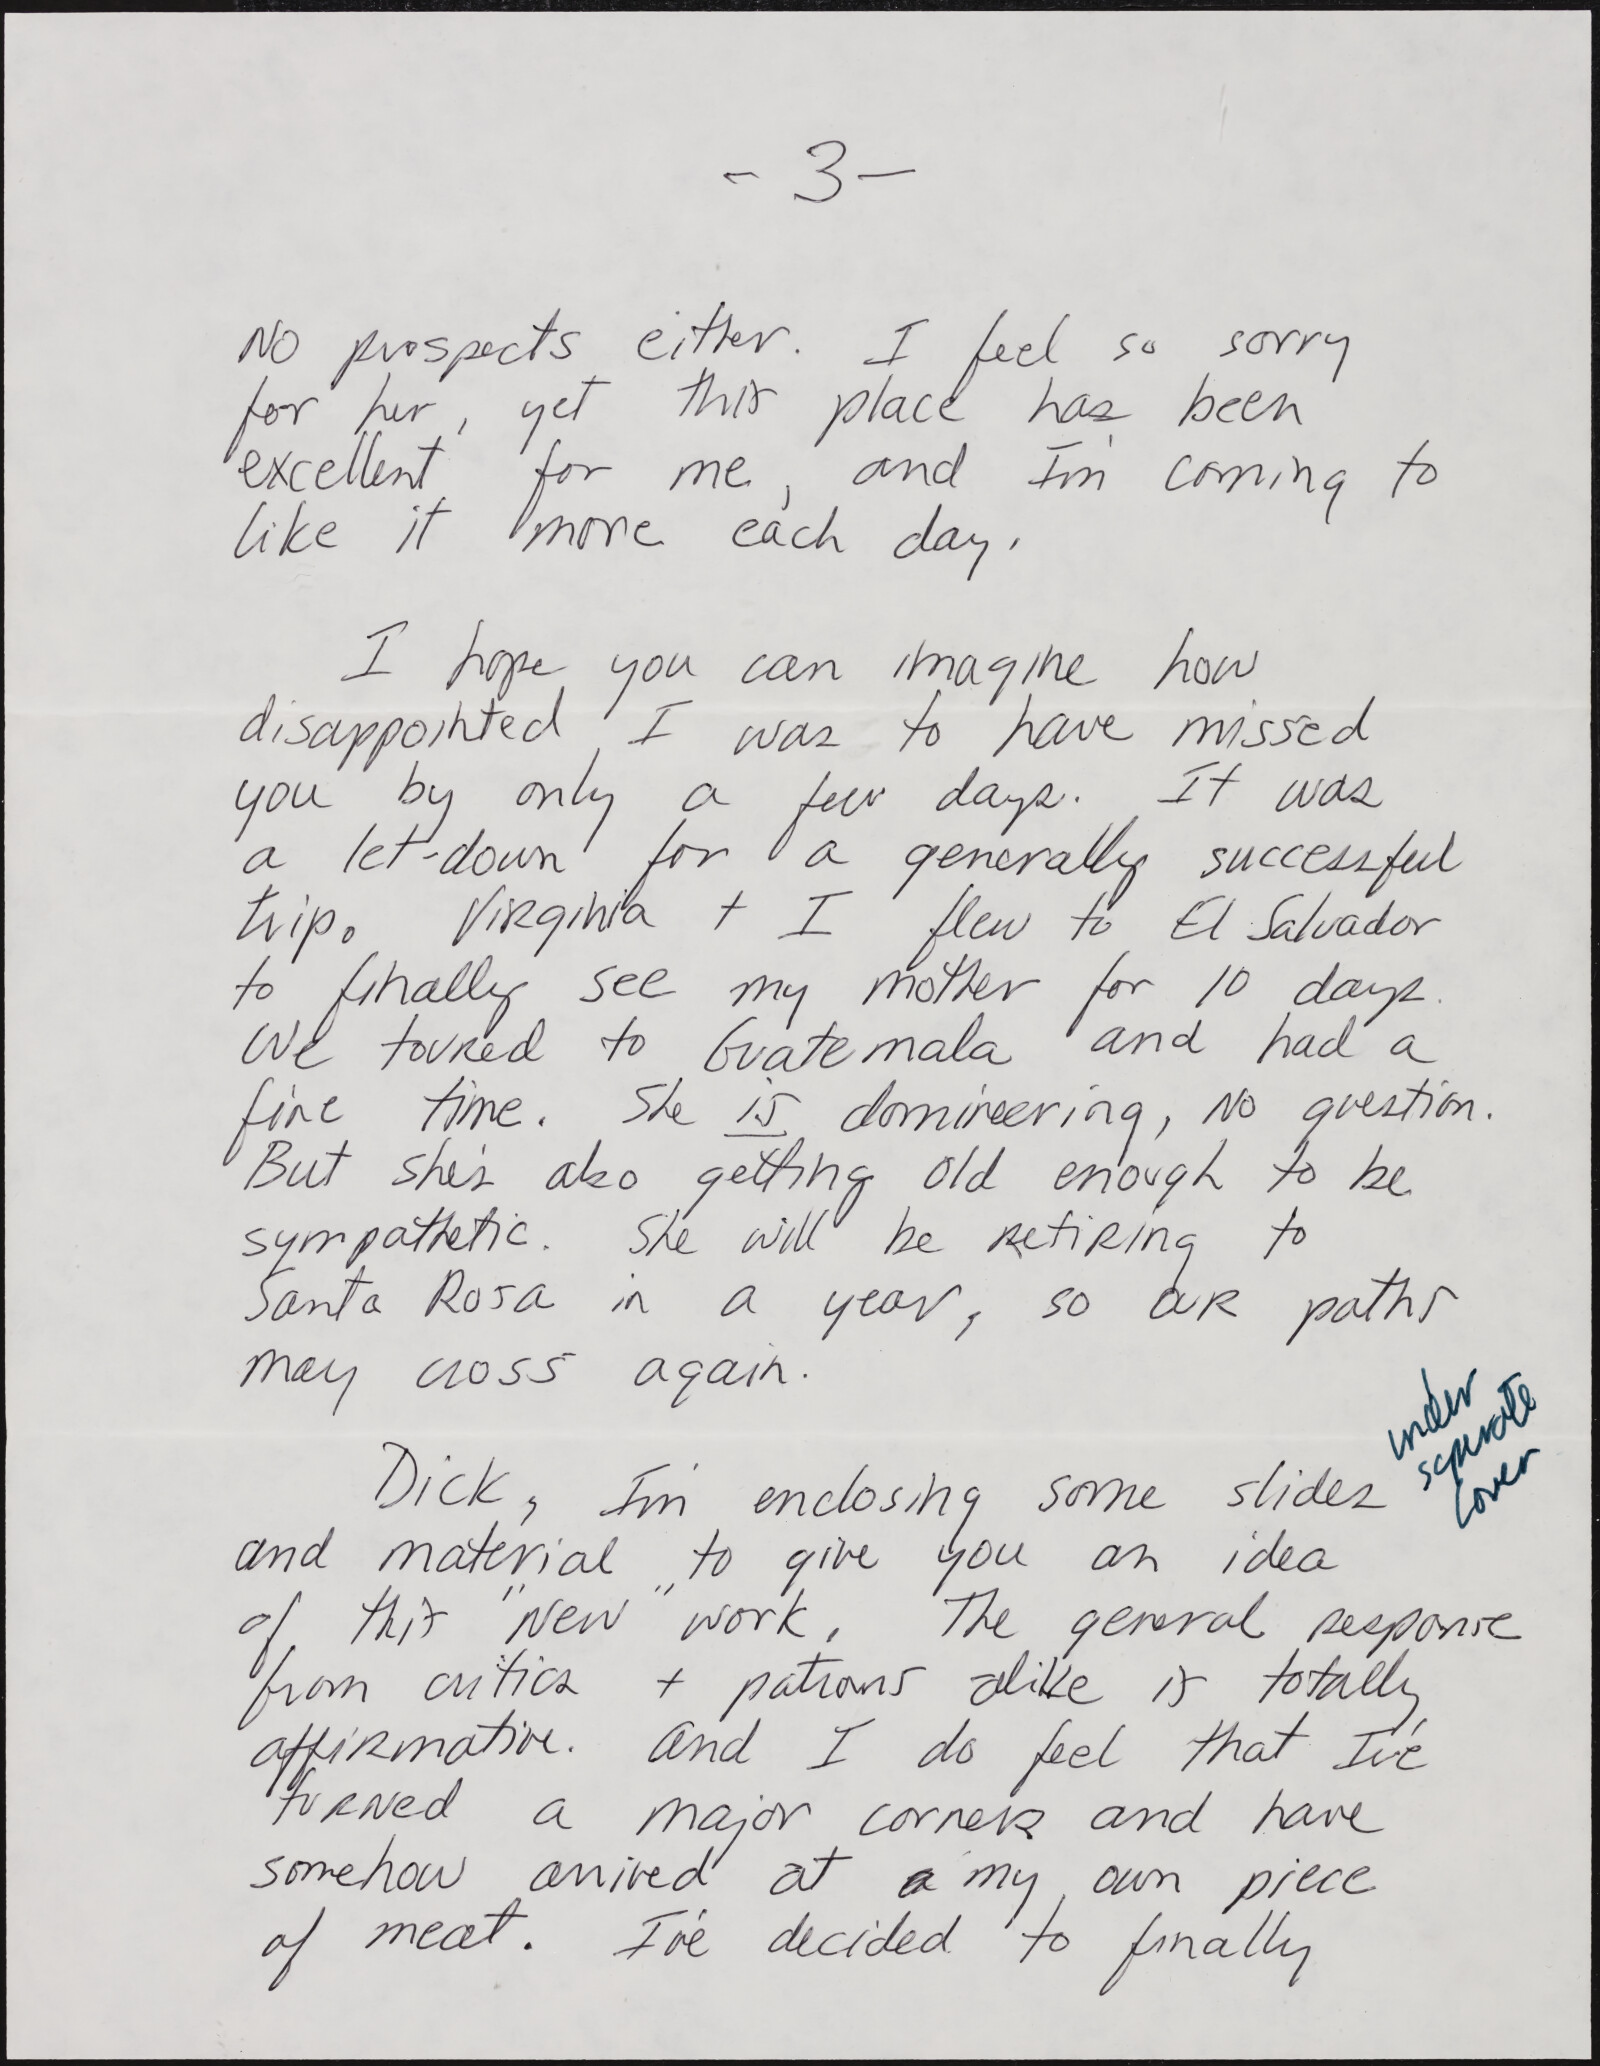 - 3 -
No prospects either. I feel so sorry
for her, yet this place has been
excellent for me, and I'm coming to
like it more each day.
I hope you can imagine how
disappointed I was to have missed
you by only a few days. It was
a let-down for a generally successful
trip. Virginia + I flew to El Salvador
to finally see my mother for 10 days.
We toured to Guatemala and had a
fine time. She is domineering, no question.
But she's also getting old enough to be
sympathetic. She will be retiring to
Santa Rosa in a year, so our paths
may cross again.
under
separate
cover
Dick, I'm enclosing some slides
and material to give you an idea
of this "new" work. The general response
from critics + patrons alike is totally
affirmative. And I do feel that I've
turned a major corner and have
somehow arrived at my own piece
of meat. I've decided to finally